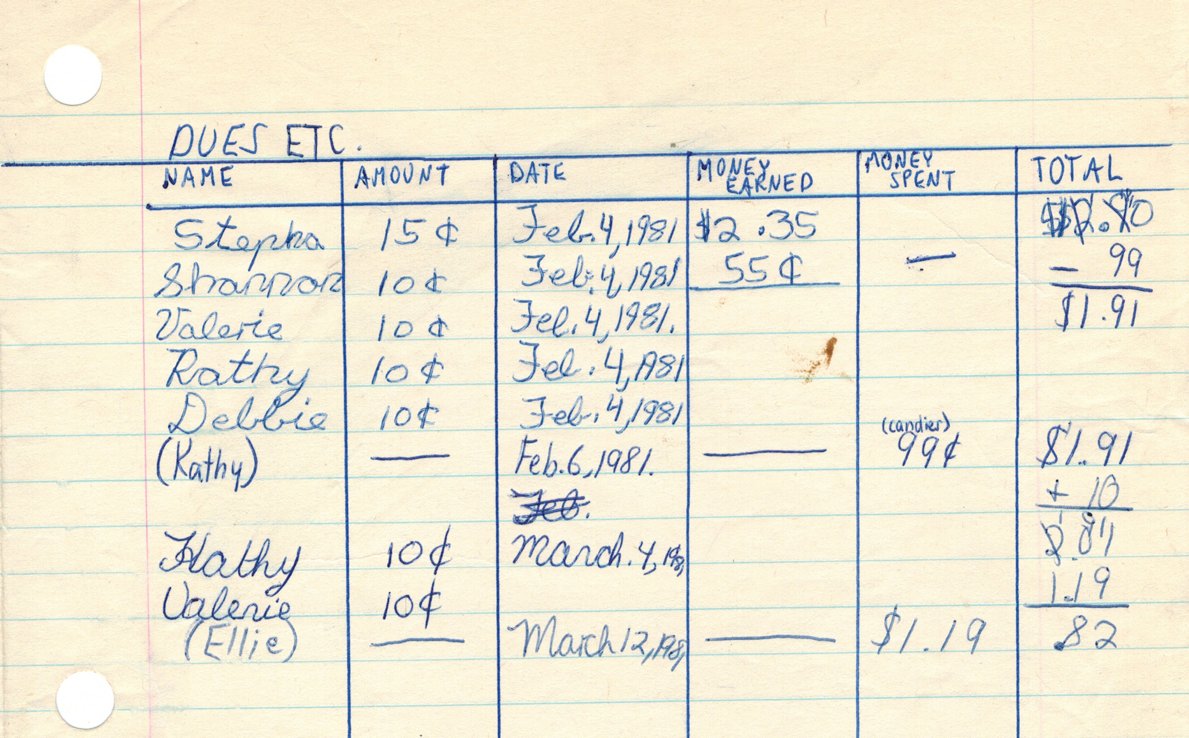 DUES ETC.
NAME AMOUNT DATE MONEY EARNED MONEY SPENT TOTAL
Stepha 15¢ Feb. 4, 1981 $2.35
Shannon 10¢ Feb. 4, 1981 55¢ — — 99
Valerie 10¢ Feb. 4, 1981. $1.91
Kathy 10¢ Feb. 4, 1981
Debbie 10¢ Feb. 4, 1981
(Kathy) — Feb. 6, 1981. — (candies) 99¢ $1.91
Feb. + 10
Kathy 10¢ March. 4, 198
Valerie 10¢ 1.19
(Ellie) — March 12, 198 — $1.19 .82